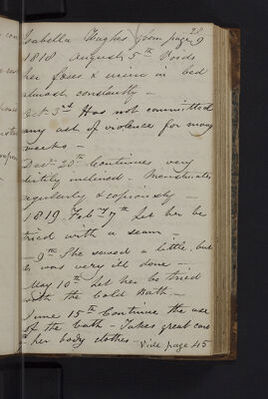 Isabella Hughes from page 29
1818 August 5th Voids
her fæces & urine in bed
almost constantly —
Oct 3rd Has not committed
any act of violence for many
weeks —
Dec 20th Continues very
inclined. Menstruates
regularly & copiously —
1819. Feby 7th Let her be
tried with a seam —
— 9th She sewed a little but
it was very ill done —
May 10th Let her be tried
with the Cold Bath —
June 15th Continue the use
of the bath — Takes great care
of her body clothes — Vide page 45